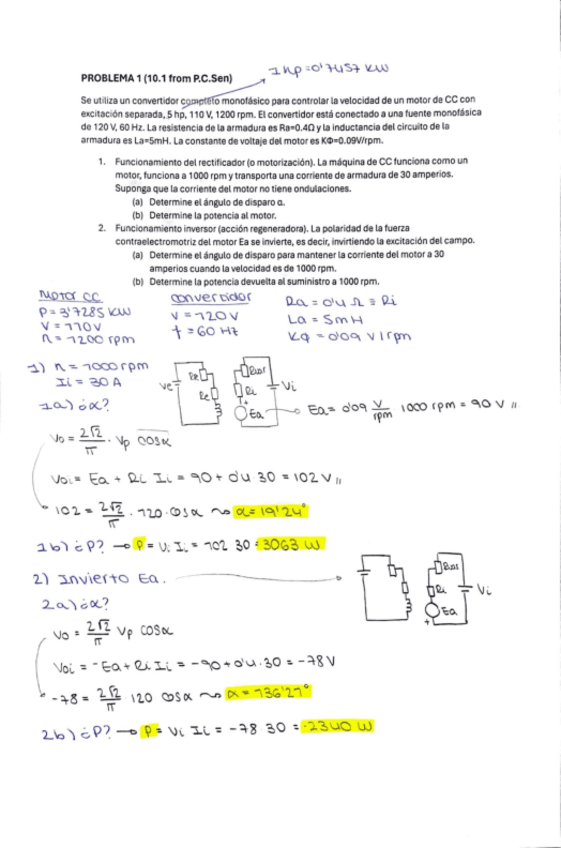 1hp=0'7457 KW
PROBLEMA 1 (10.1 from P.C.Sen)
Se utiliza un convertidor completo monofásico para controlar la velocidad de un motor de CC con
excitación separada, 5 hp, 110 V, 1200 rpm. El convertidor está conectado a una fuente monofásica
de 120 V, 60 Hz. La resistencia de la armadura es Ra=0.4Ω y la inductancia del circuito de la
armadura es La=5mH. La constante de voltaje del motor es KΦ=0.09V/rpm.
1. Funcionamiento del rectificador (o motorización). La máquina de CC funciona como un
motor, funciona a 1000 rpm y transporta una corriente de armadura de 30 amperios.
Suponga que la corriente del motor no tiene ondulaciones.
(a) Determine el ángulo de disparo α.
(b) Determine la potencia al motor.
2. Funcionamiento inversor (acción regeneradora). La polaridad de la fuerza
contraelectromotriz del motor Ea se invierte, es decir, invirtiendo la excitación del campo.
(a) Determine el ángulo de disparo para mantener la corriente del motor a 30
amperios cuando la velocidad es de 1000 rpm.
(b) Determine la potencia devuelta al suministro a 1000 rpm.
Motor CC convertidor Ra = 0'4 Ω ≡ Ri
P = 3'7285 KW V = 120V La = 5mH
V = 110V f = 60 Hz Kφ = 0'09 V/rpm
n = 1200 rpm
1) n = 1000 rpm
Ii = 30 A
1a) ¿α?
Ve Ri Ea Vi
Ea = 0'09 V/rpm 1000 rpm = 90 V //
Vo = 2√2/π · Vp cosα
Voi = Ea + Ri Ii = 90 + 0'4 30 = 102 V //
102 = 2√2/π · 120 · cosα ⤳ α = 19'24°
1b) ¿P? → P = Vi Ii = 102 30 = 3063 W
2) Invierto Ea.
Ri Ea Vi
2a) ¿α?
Vo = 2√2/π Vp cosα
Voi = -Ea + Ri Ii = -90 + 0'4 · 30 = -78 V
-78 = 2√2/π 120 cosα ⤳ α = 136'21°
2b) ¿P? → P = Vi Ii = -78 · 30 = -2340 W